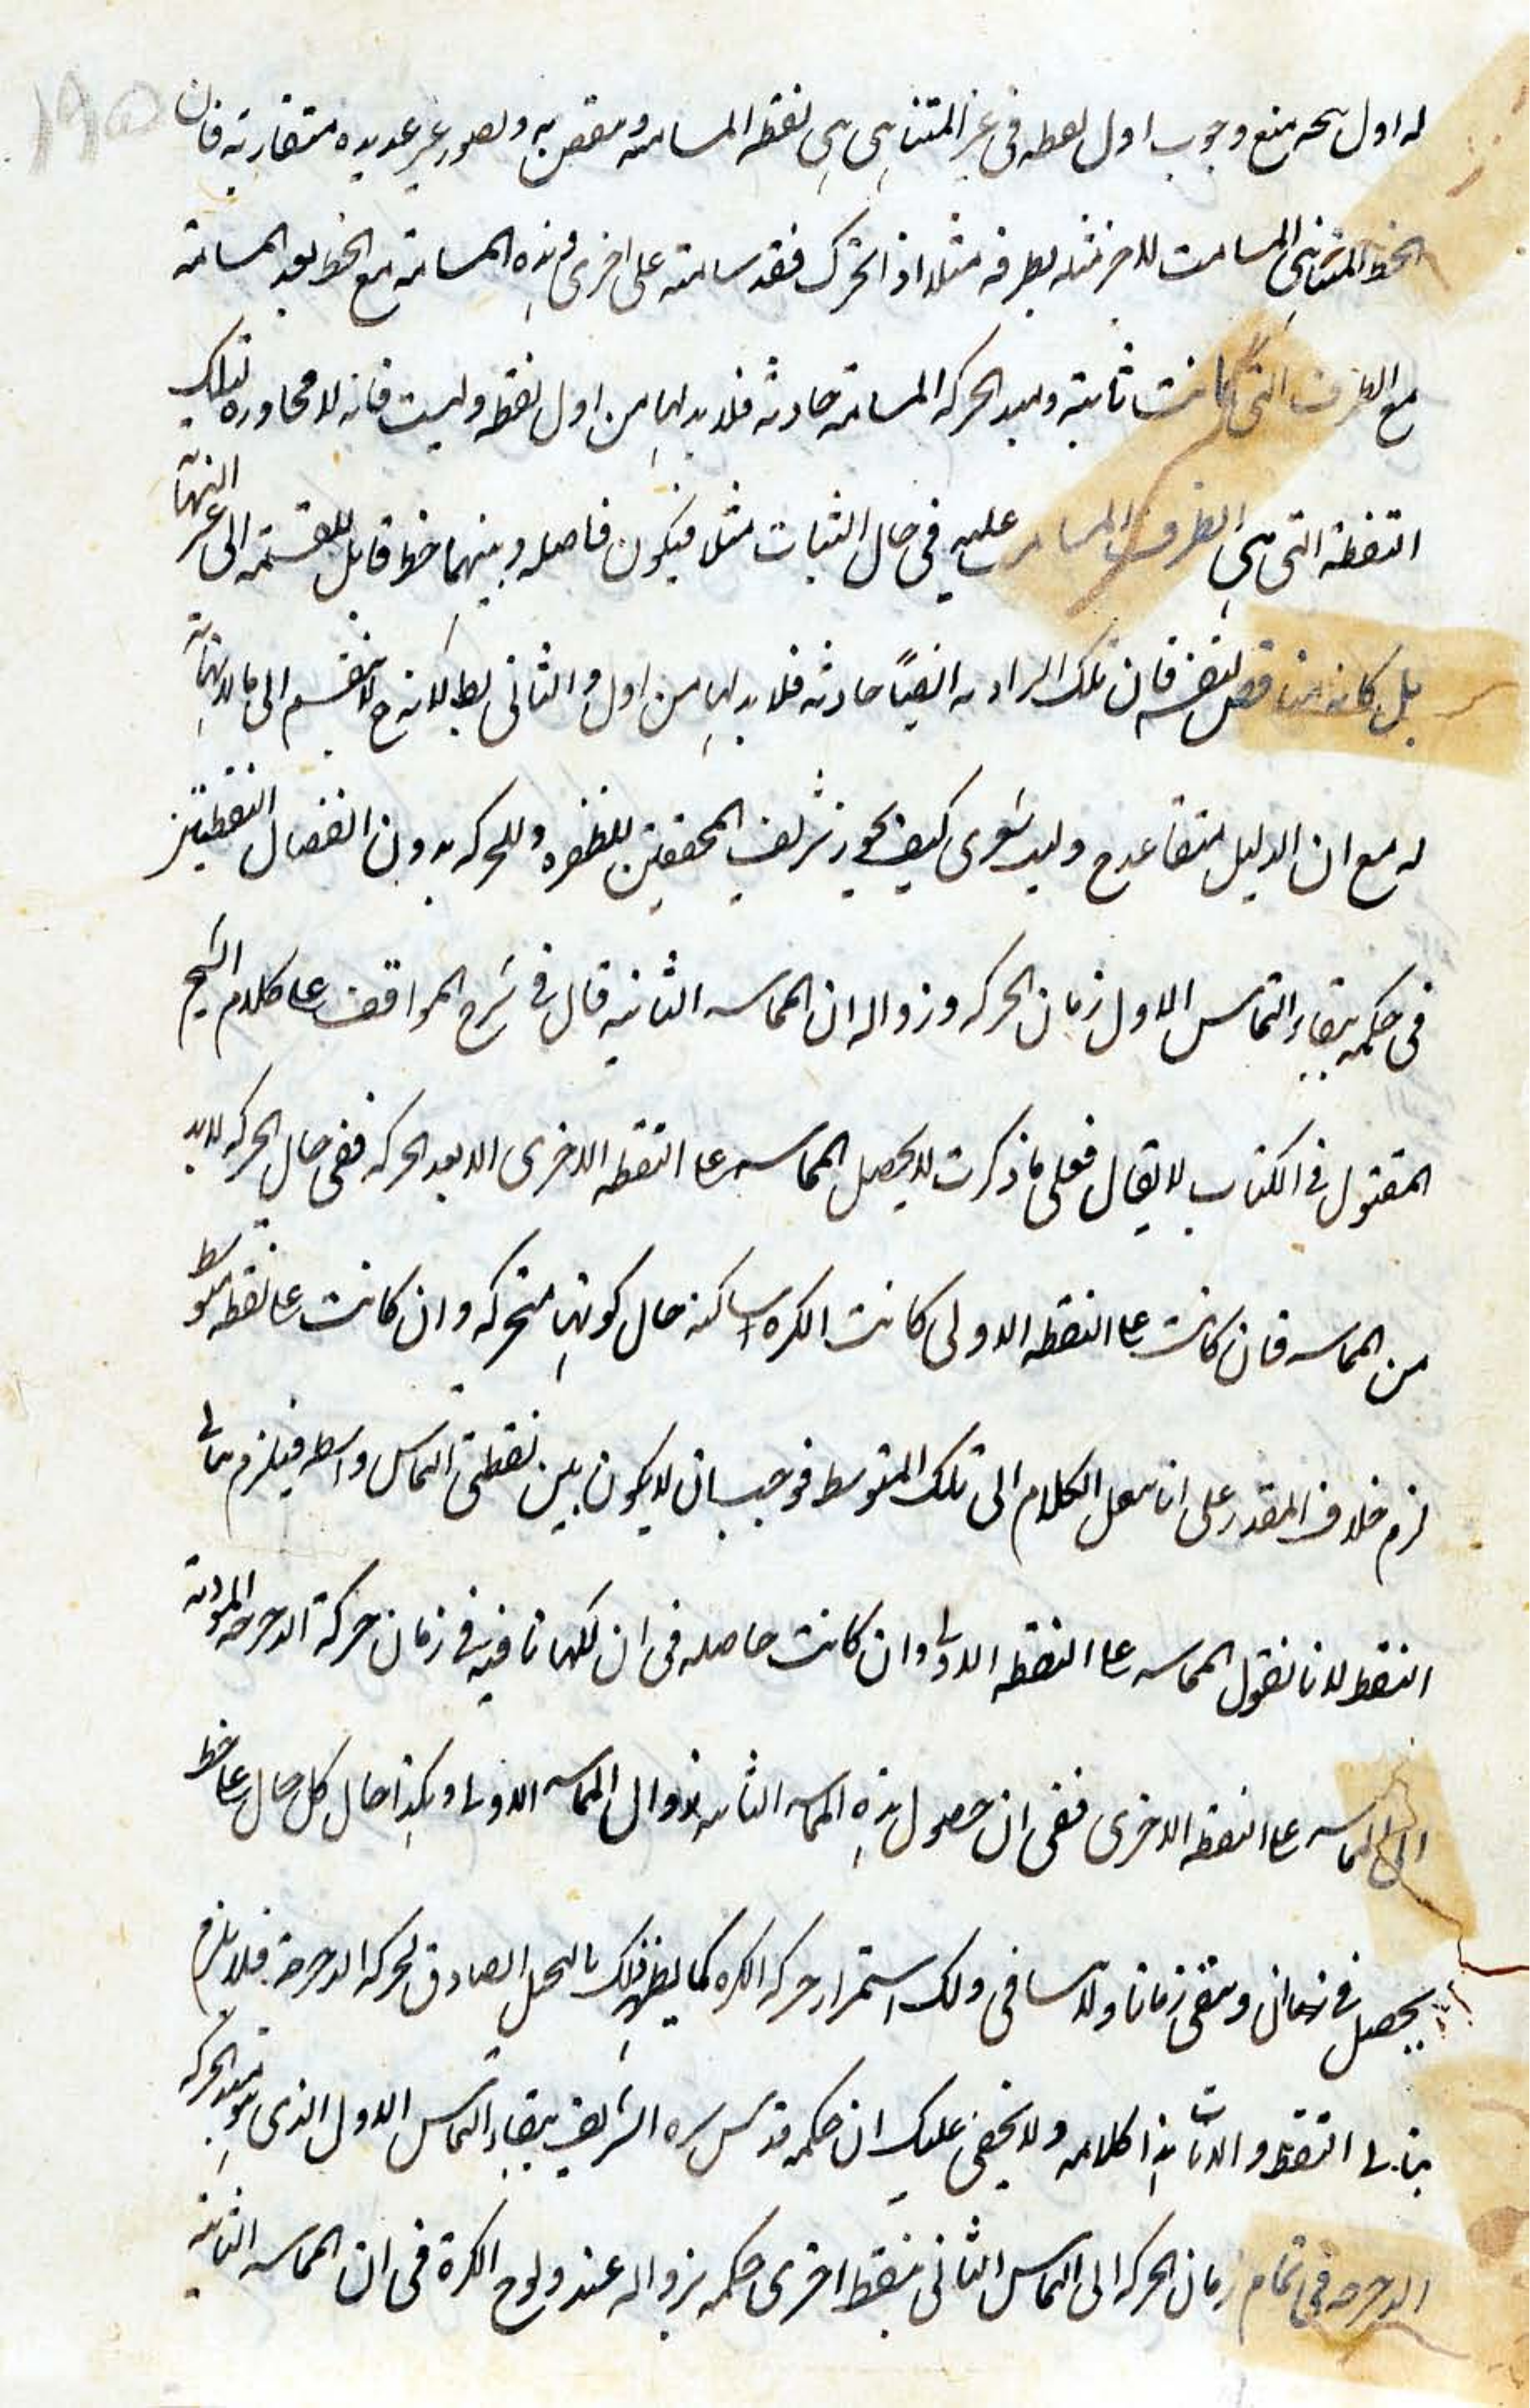 له اول سحه منع وجوب اول لعطه فى غير المتناهى هى نقطه المسامته ومنقض به وبصور غير عديده متقاربة فان
الخط المتناهى المسامت للاخر مثله بطرفه مثلا اذا تحرك فقد سامته على اخرى وهذه المسامته مع الخط بعد المسامته
مع الطرف التى كانت ثابتة وبعيد الحركه المسامته حادثه فلا بد لها من اول نقطه وليست فانه لا محاوره لتلك
النقطة التى هى الطرف المسامت عليه فى حال الثبات مثلا فيكون فاصله وبينهما خط قابل للقسمة الى غير النهاية
بل كانه مناقض لنفسه فان تلك الزاويه ايضًا حادثه فلا بد لها من اول والثانى بط لانه ح لا ينقسم الى ما لا نهاية
له مع ان الدليل متقاعد ح وليت شعرى كيف يجوز شريف المحققين للطفره وللحركه بدون انفصال النقطتين
فى حكمه ببقاء التماس الاول زمان الحركه وزواله ان المماسه الثانيه قال فى شرح المواقف على كلام الشيخ
المقتول فى الكتاب لا يقال فعلى ما ذكرت لا يحصل المماسه على النقطه الاخرى الا بعد الحركه ففى حال الحركه لا بد
من المماسه فان كانت على النقطه الاولى كانت الكره ساكنه حال كونها متحركه وان كانت على نقطه متوسط
لزم خلاف المقدر على انا ننقل الكلام الى تلك المتوسط فوجب ان لا يكون بين نقطتى التماس واسطه فيلزم تتالى
النقط لانا نقول المماسه على النقطه الاولى وان كانت حاصله فى ان لكنها باقيه فى زمان حركة الدحرجه المؤديه
الى المماسه على النقطه الاخرى ففى ان حصول هذه المماسه الثانيه زوال المماسه الاولى وهكذا حال كل حال على خط
يحصل فى ان وتبقى زمانا ولا ينافى ذلك استمرار حركه الكره كما يظهر ذلك بالتخيل الصادق لحركه الدحرجة فلا يلزم
تتالى النقط والانات هذا كلامه ولا يخفى عليك ان حكمه قدس سره الشريف ببقاء التماس الاول الذى هو قبيل الحركه
الدحرجه فى تمام زمان الحركه الى التماس الثانى بنقط اخرى حكمه بزواله عند ولوج الكرة فى ان المماسه الثانيه